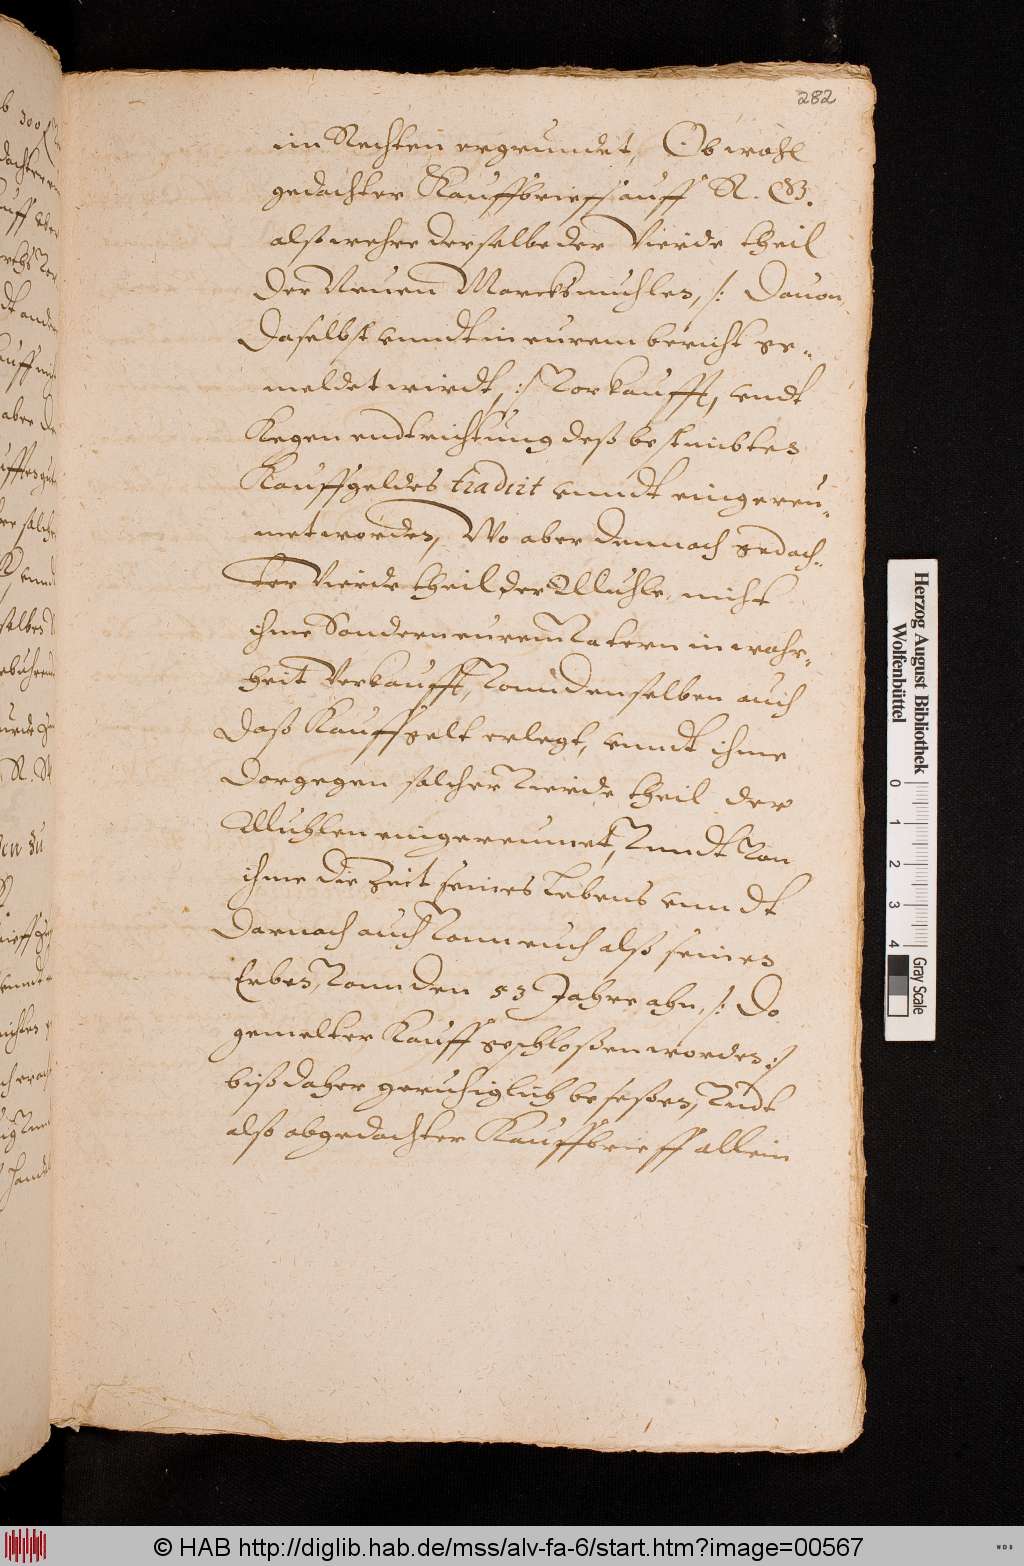 282
im Rechten ergrundet, Ob wohl
gedachter Kauffbrieff auff N. G.
alß wehre derselbe der Vierde theil
der Neuen Marcksmuhlen, /: Dauon
daselbst vnndt in eurem bericht ge-
meldet wirdt, :/ Vorkaufft, vndt
kegen endtrichtung deß bestimbten
Kauffgeldes tradirt vnndt eingereu-
met worden, Wo aber dennoch gedach-
ter Vierde theil der Muhle, nicht
ihme Sondern eurem Vatern in wahr-
heit Verkaufft, Vonn denselben auch
daß Kauffgelt erlegt, vnndt ihme
dargegen solcher Vierde theil der
Muhlen eingereumet, Vnndt Von
ihme die Zeit seines Lebens vnndt
darnach auch Vonn euch alß seinen
Erben, Vonn den 53 Jahre ahn, /: Do
gemelter Kauff geschloßen worden :/
biß daher geruhiglich beseßen, Vndt
alß abgedachter Kauffbrieff allein
Herzog August Bibliothek
Wolfenbüttel
0 1 2 3 4
Gray Scale
© HAB http://diglib.hab.de/mss/alv-fa-6/start.htm?image=00567